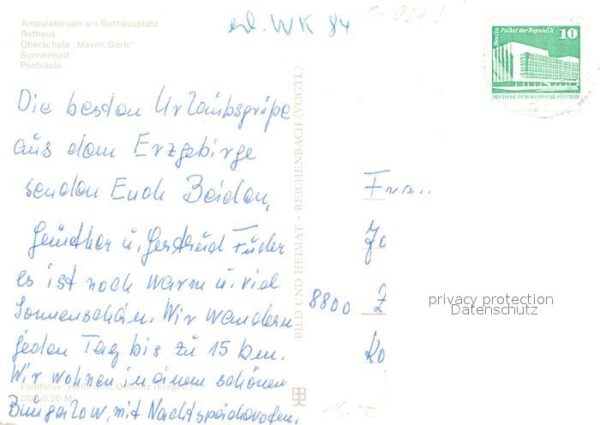 Ambulatorium am Rathausplatz
Rathaus
Oberschule „Maxim Gorki"
Sonnenbad
Postsäule
erl. WK 84
Berlin Palast der Republik
10
DEUTSCHE DEMOKRATISCHE REPUBLIK
Die besten Urlaubsgrüße
aus dem Erzgebirge
senden Euch Beiden,
Günther u. Gertrud
es ist noch warm u. viel
Sonnenschein. Wir wandern
jeden Tag bis zu 15 km.
Wir wohnen in einem schönen
Bungalow, mit Nachtspeicherofen.
BILD UND HEIMAT · REICHENBACH (VOGTL)
Frau
8800 Z
privacy protection
Datenschutz